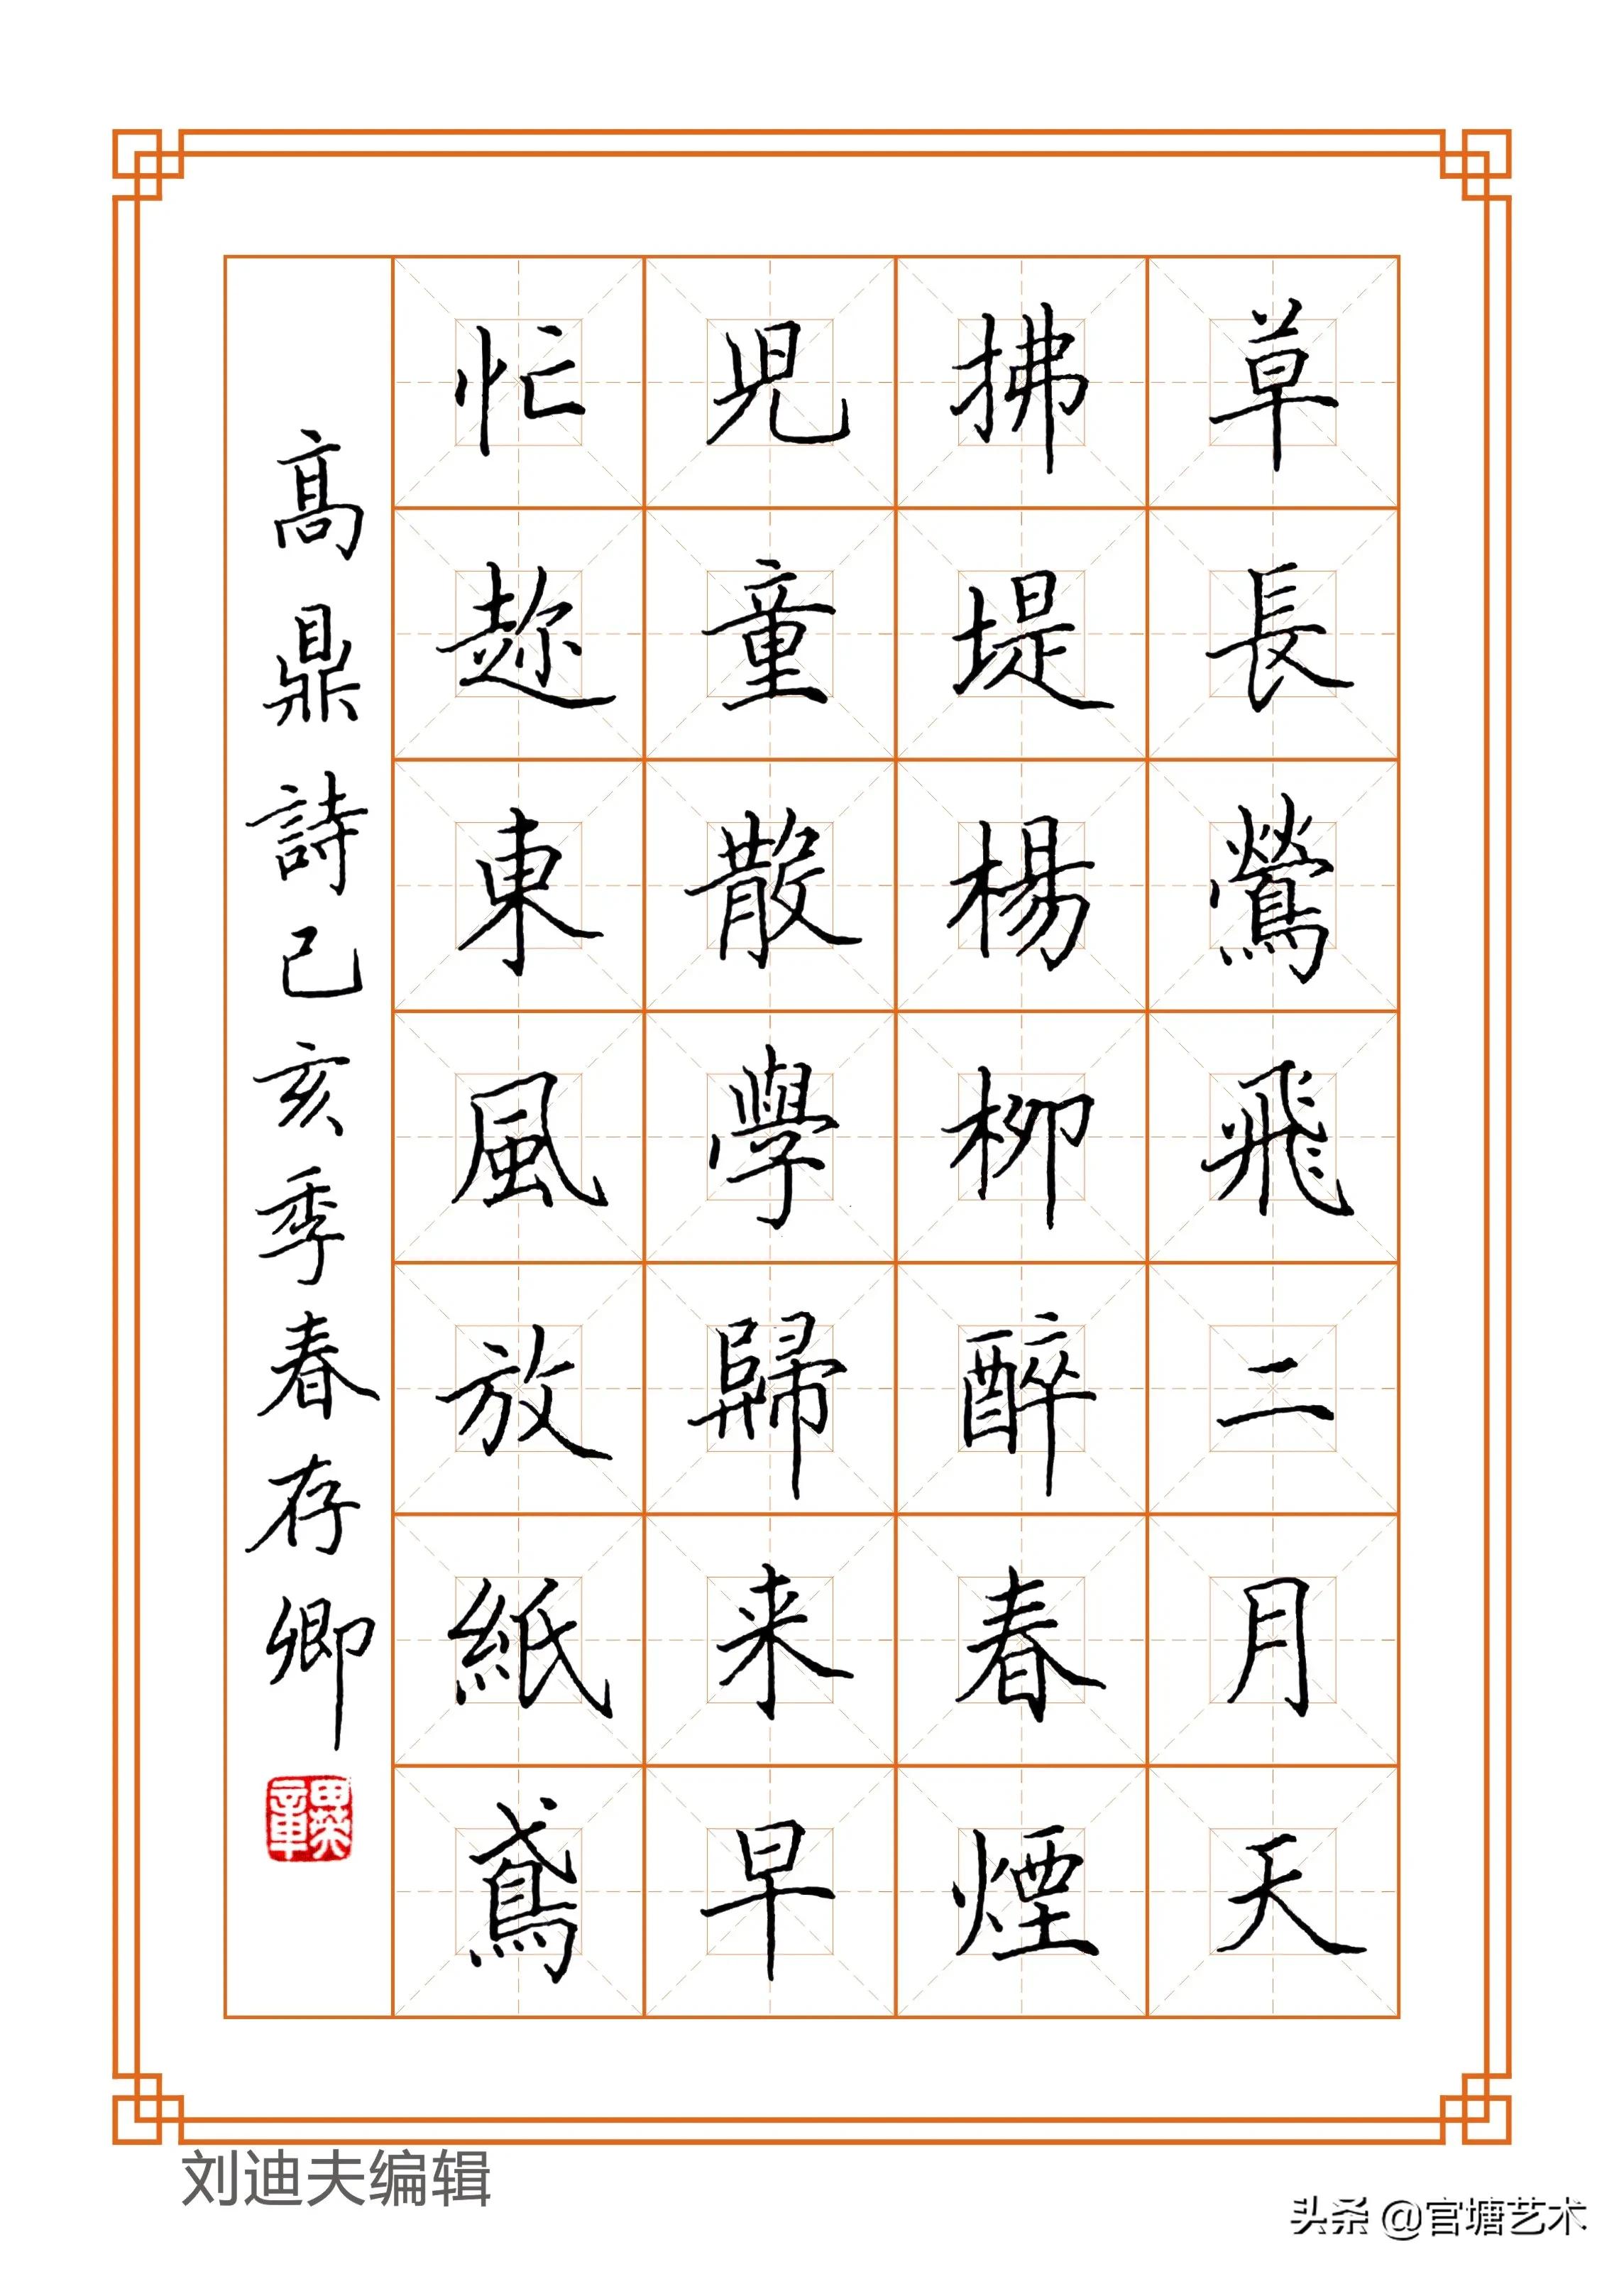 草長鶯飛二月天
拂堤楊柳醉春煙
児童散學歸来早
忙趂東風放紙鳶
高鼎詩己亥季春存卿
刘迪夫编辑
头条 @官塘艺术